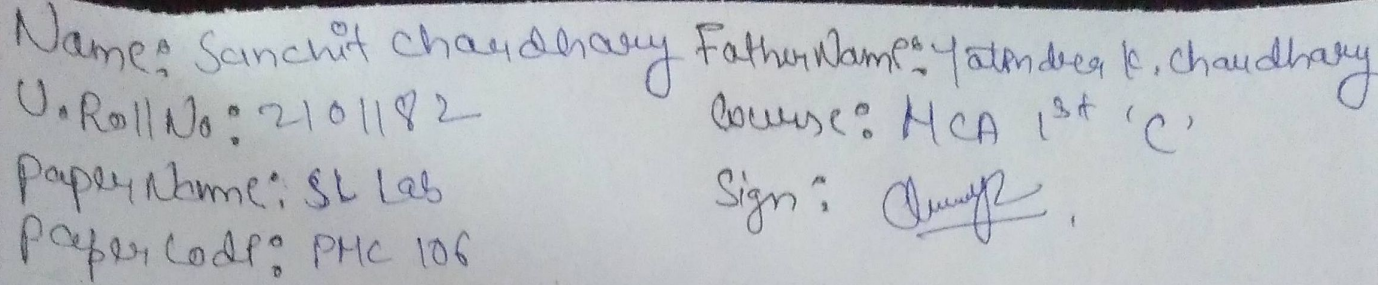 Name: Sanchit Chaudhary Father Name: Yatendra K. Chaudhary
U. Roll No: 2101182 Course: MCA 1st 'C'
Paper Name: SL Lab Sign:
Paper Code: PMC 106